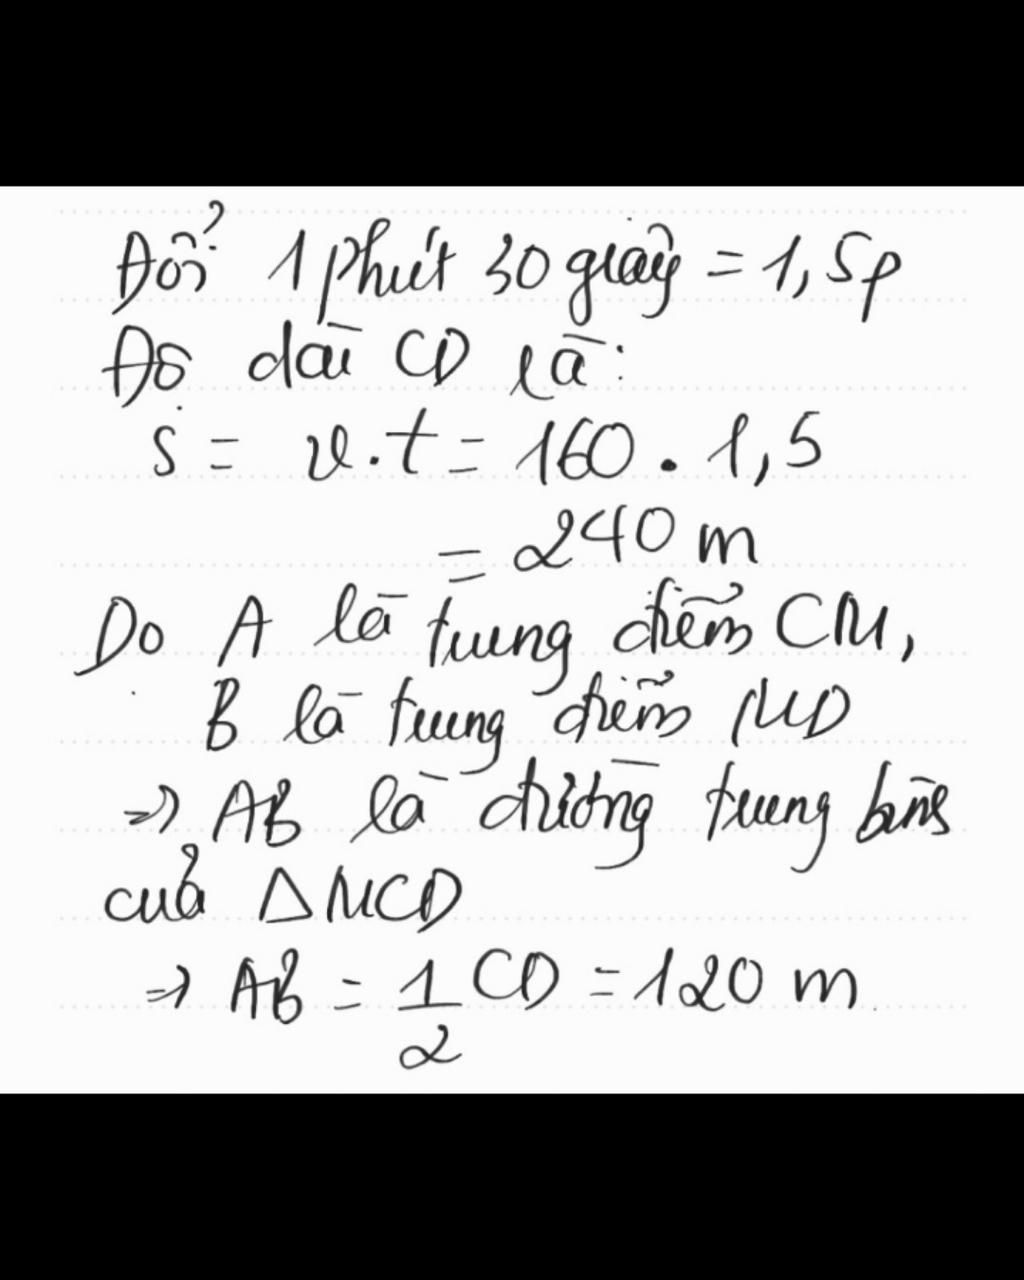 Đổi 1 phút 30 giây = 1,5p
Độ dài CD là:
s = v.t = 160 . 1,5
= 240 m
Do A là trung điểm CM,
B là trung điểm MD
=> AB là đường trung bình
của △ MCD
=> AB = 1/2 CD = 120 m